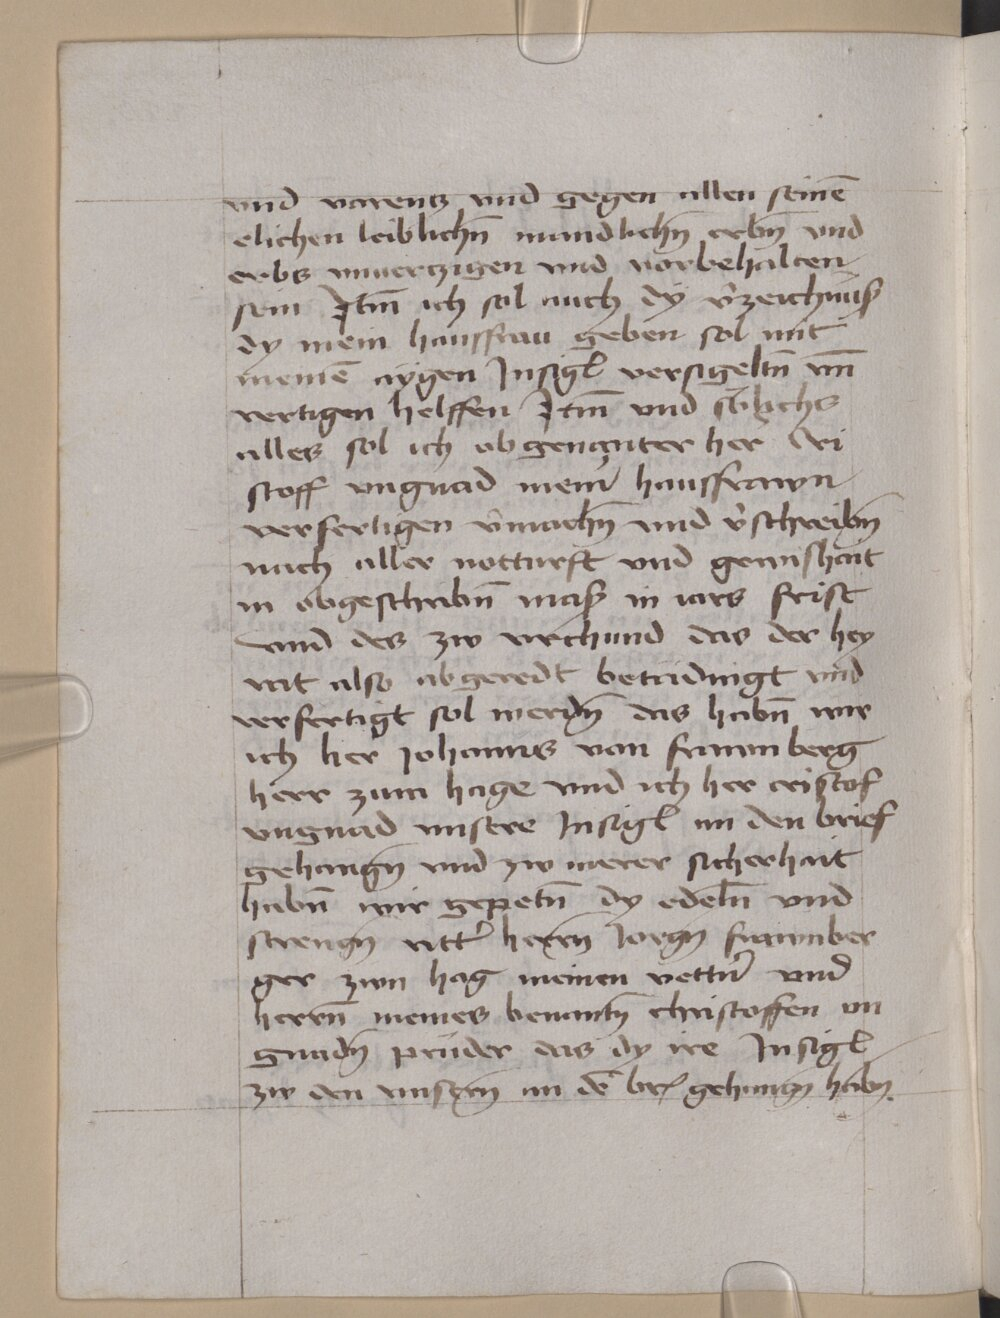 und vorentz und gegen allen seinē
elichen leiblichn̄ manndlichn̄ erbn̄ und
erbs unvertzigen und vorbehalten
sein Itm̄ ich sol auch dÿ v̓zeichnuß
dy mein hausfrau geben sol mit
meinē aÿgen Insigl versigeltn̄ vn̄
vertigen helffen Itm̄ und sölichs
alles sol ich obgenanter her Cri
stoff ungnad meinr̄ hausfrawn
verfertigen v̓machn̄ und v̓schreibn̄
nach aller notturft und gewishait
in obgeschribn̄ maß in iars frist
und des zw urchund das der hey
rat also abgeredt betaidingt und
verfertigt sol werdn̄ das habn̄ wir
ich her Johanns von fraunberg
herr zum hage und ich her cristof
ungnad unsere Insigl an den brief
gehangn̄ und zw merer sicherhait
habn̄ wir gepetn̄ dy edeln̄ und
strengn̄ ritt̓ herrn̄ Jorgn̄ fraunber
ger zum hag meinen vettn̓ und
herrn̄ meines benantn̄ christoffen un
gnadn̄ prüder das dy ire Insigl
zw den unsern̄ an dē brf gehangn̄ habn̄.